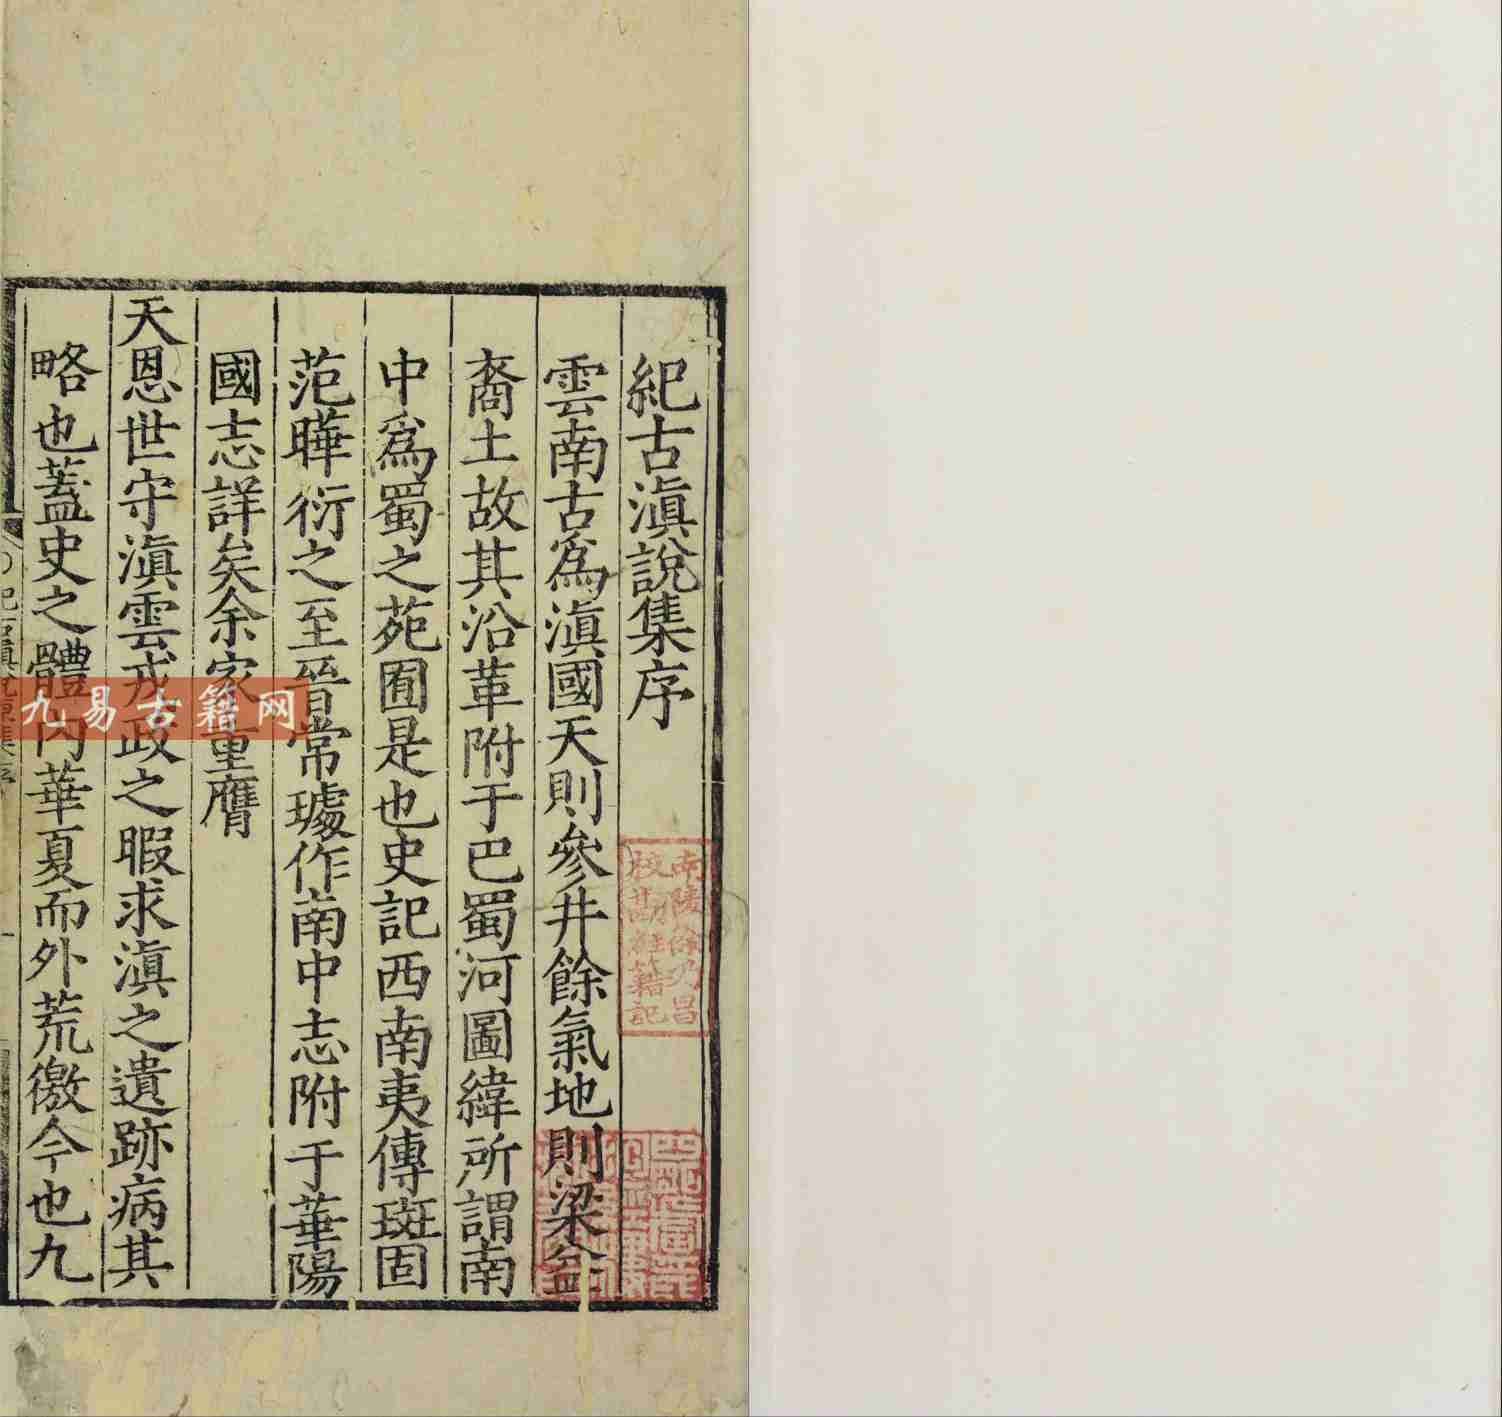 紀古滇說集序
雲南古為滇國天則參井餘氣地則梁益
裔土故其沿革附于巴蜀河圖緯所謂南
中為蜀之苑囿是也史記西南夷傳斑固
范曄衍之至晉常璩作南中志附于華陽
國志詳矣余家重膺
天恩世守滇雲戎政之暇求滇之遺跡病其
略也蓋史之體內華夏而外荒徼今也九
南陵徐乃昌
校勘經籍記
九易古籍网